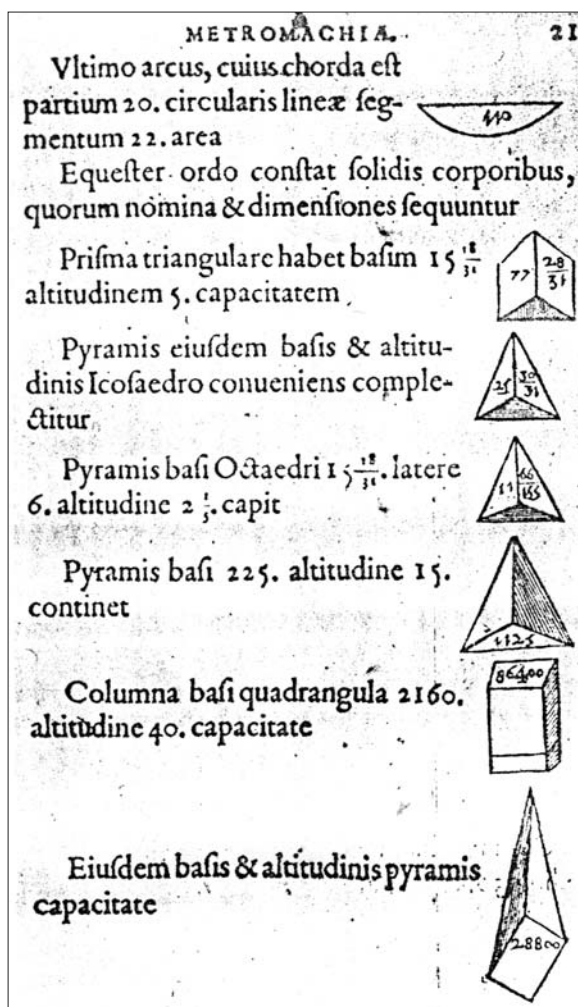 METROMACHIÆ. 21
Vltimo arcus, cuius chorda eſt
partium 20. circularis lineæ ſeg-
mentum 22. area
110
Equeſter ordo conſtat ſolidis corporibus,
quorum nomina & dimenſiones ſequuntur
Priſma triangulare habet baſim 15 18/31
altitudinem 5. capacitatem
77 28/31
Pyramis eiuſdem baſis & altitu-
dinis Icoſaedro conueniens comple-
ctitur
25 30/31
Pyramis baſi Octaedri 15 18/31. latere
6. altitudine 2 1/5. capit
11 66/155
Pyramis baſi 225. altitudine 15.
continet
1125
Columna baſi quadrangula 2160.
altitudine 40. capacitate
86400
Eiuſdem baſis & altitudinis pyramis
capacitate
28800